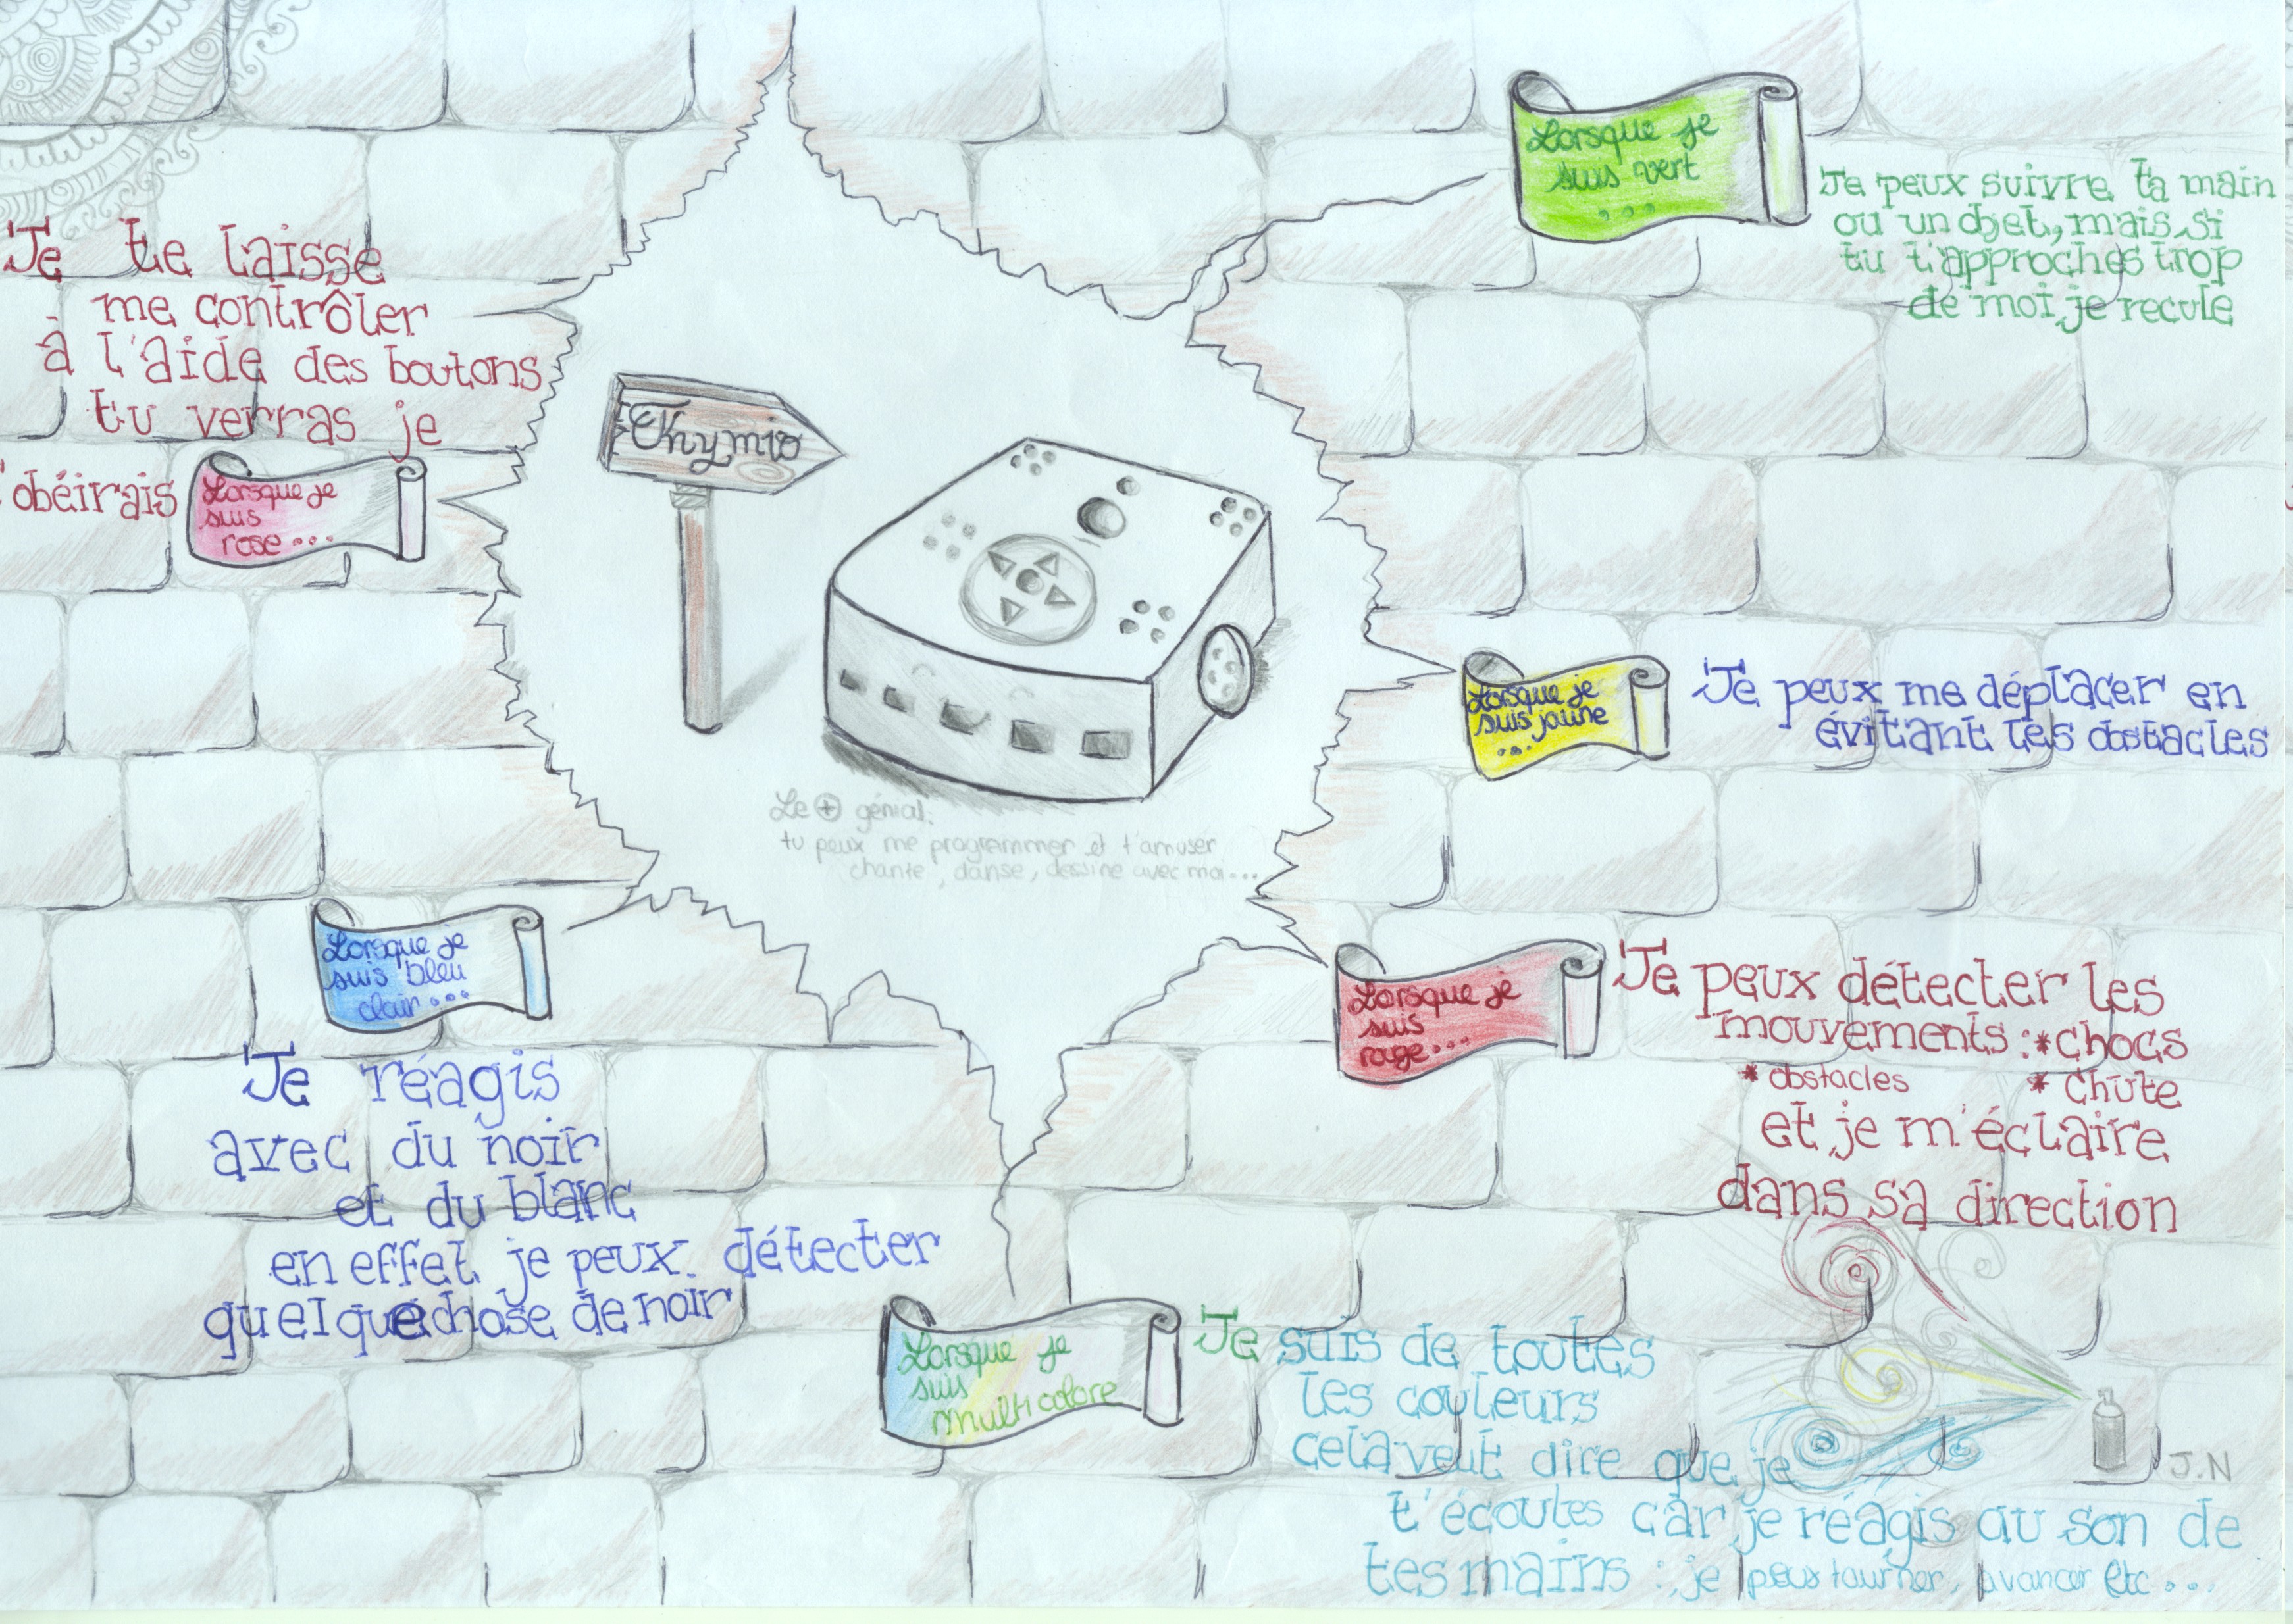 Je te laisse
me contrôler
à l'aide des boutons
tu verras je
t'obéirais
Lorsque je
suis
rose...
Thymio
Le + génial:
tu peux me programmer et t'amuser
chante, danse, dessine avec moi...
Lorsque je
suis vert
...
Je peux suivre ta main
ou un objet, mais si
tu t'approches trop
de moi je recule
Lorsque je
suis jaune
...
Je peux me déplacer en
évitant les obstacles
Lorsque je
suis
rouge...
Je peux détecter les
mouvements : *chocs
* obstacles * chute
et je m'éclaire
dans sa direction
Lorsque je
suis bleu
clair...
Je réagis
avec du noir
et du blanc
en effet je peux détecter
quelque chose de noir
Lorsque je
suis
multicolore
Je suis de toutes
les couleurs
cela veut dire que je
t'écoutes car je réagis au son de
tes mains : je peux tourner, avancer etc...
J.N